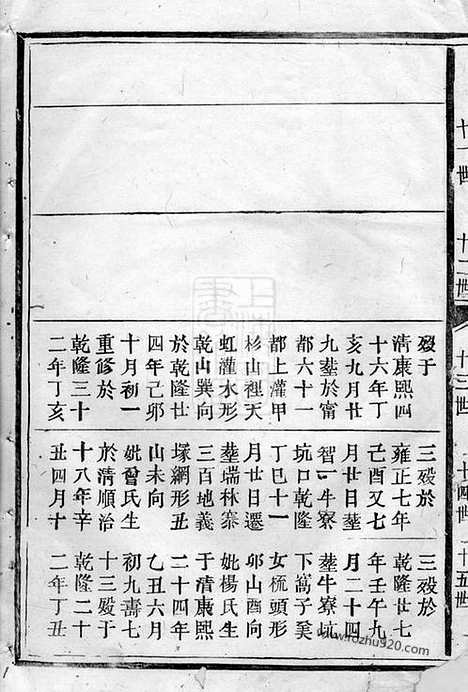 十一世
十二世
十三世
十四世
十五世
歿于
清康熙四
十六年丁
亥九月廿
九葬於甯
都六十一
都上灌甲
杉山裡天
虹灌水形
乾山巽向
於乾隆廿
四年己卯
十月初一
重修於
乾隆三十
二年丁亥
三歿於
雍正七年
己酉又七
月廿日葬
智一牛寮
坑口乾隆
丁巳十一
月廿日遷
葬瑞林寨
三百地義
塚網形丑
山未向
妣曾氏生
於清順治
十八年辛
丑四月十
三歿於
乾隆廿七
年壬午九
月二十四
葬牛寮坑
下篙子
女梳頭形
卯山酉向
妣楊氏生
于清康熙
二十四年
乙丑六月
初九壽七
十三歿于
乾隆二十
二年丁丑
www.kfzhouy920.com